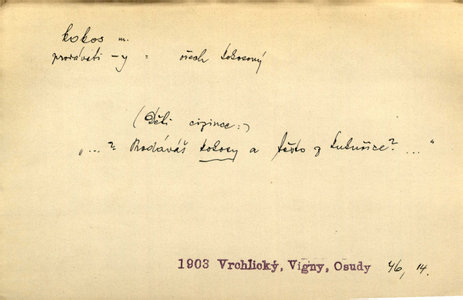 kokos m.
prodávati -y : ořech kokosový
(Děti cizince:)
„...? Prodáváš kokosy a těsto z kukuřice? ..."
1903 Vrchlický, Vigny, Osudy 46, 14.